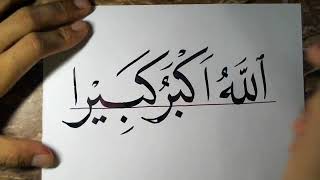 اللّٰهُ اَكْبَرُ كَبِيْرا